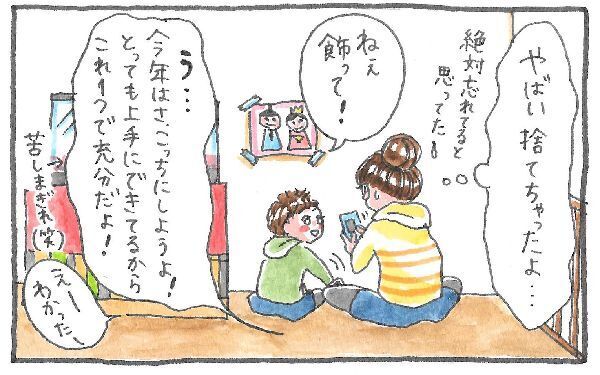 やばい捨てちゃったよ…
絶対忘れてると
思ってた
ねぇ
飾って!
う…
今年はさ、こっちにしようよ!
とっても上手にできてるから
これ1つで充分だよ!
苦しまぎれ(笑)
えー
わかった、